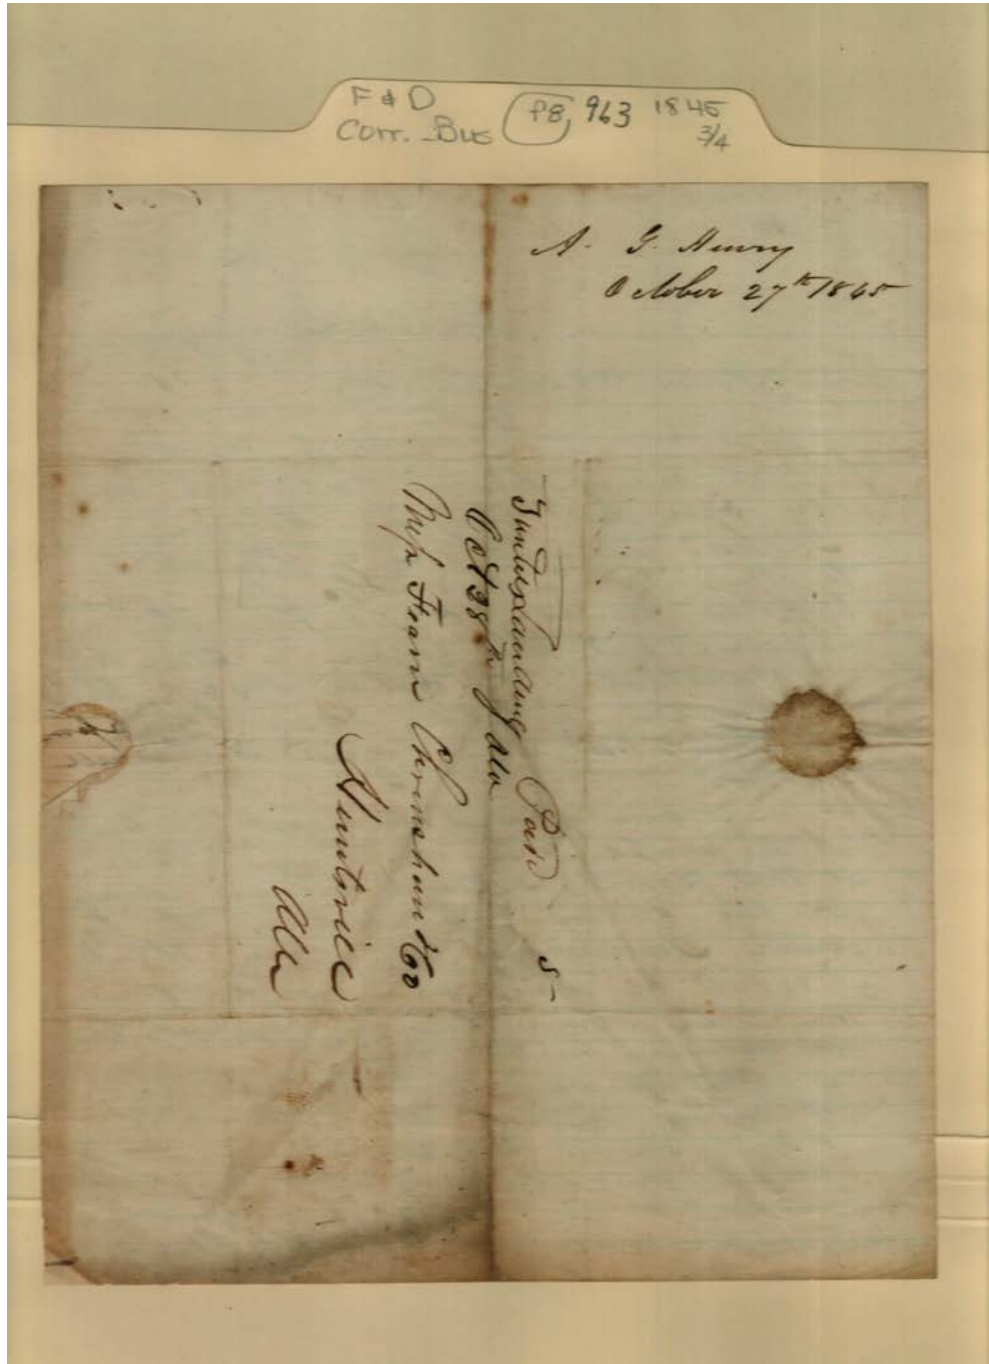 F & D
Corr. Bus P8, 963 1845
3/4
A. G. Henry
October 27th 1845
Gunters Landing Paid 5
Oct 28th Ala
Mess Fearn & Co
Huntsville
Ala